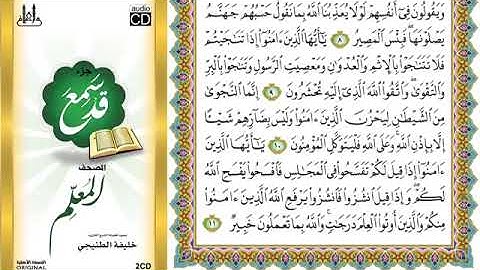 audio
CD
جزء
قد سمع
المصحف
المعلم
خليفة الطنيجي
ORIGINAL
2CD
وَيَقُولُونَ فِىٓ أَنفُسِهِمْ لَوْلَا يُعَذِّبُنَا ٱللَّهُ بِمَا نَقُولُ حَسْبُهُمْ جَهَنَّمُ
يَصْلَوْنَهَا فَبِئْسَ ٱلْمَصِيرُ ٨ يَٰٓأَيُّهَا ٱلَّذِينَ ءَامَنُوٓا۟ إِذَا تَنَٰجَيْتُمْ
فَلَا تَتَنَٰجَوْا۟ بِٱلْإِثْمِ وَٱلْعُدْوَٰنِ وَمَعْصِيَتِ ٱلرَّسُولِ وَتَنَٰجَوْا۟ بِٱلْبِرِّ
وَٱلتَّقْوَىٰ وَٱتَّقُوا۟ ٱللَّهَ ٱلَّذِىٓ إِلَيْهِ تُحْشَرُونَ ٩ إِنَّمَا ٱلنَّجْوَىٰ
مِنَ ٱلشَّيْطَٰنِ لِيَحْزُنَ ٱلَّذِينَ ءَامَنُوا۟ وَلَيْسَ بِضَآرِّهِمْ شَيْـًٔا
إِلَّا بِإِذْنِ ٱللَّهِ وَعَلَى ٱللَّهِ فَلْيَتَوَكَّلِ ٱلْمُؤْمِنُونَ ١٠ يَٰٓأَيُّهَا ٱلَّذِينَ
ءَامَنُوٓا۟ إِذَا قِيلَ لَكُمْ تَفَسَّحُوا۟ فِى ٱلْمَجَٰلِسِ فَٱفْسَحُوا۟ يَفْسَحِ ٱللَّهُ
لَكُمْ وَإِذَا قِيلَ ٱنشُزُوا۟ فَٱنشُزُوا۟ يَرْفَعِ ٱللَّهُ ٱلَّذِينَ ءَامَنُوا۟
مِنكُمْ وَٱلَّذِينَ أُوتُوا۟ ٱلْعِلْمَ دَرَجَٰتٍ وَٱللَّهُ بِمَا تَعْمَلُونَ خَبِيرٌ ١١